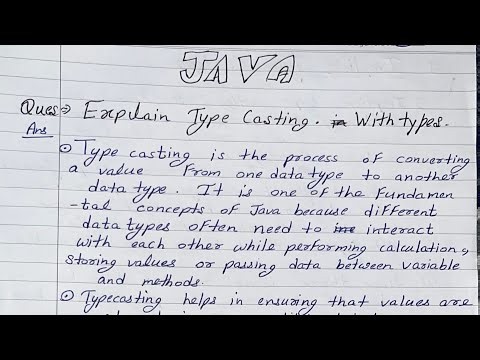 JAVA
Ques⇒ Explain Type Casting. in With types.
Ans
⊙ Type casting is the process of converting
a value From one data type to another
data type. It is one of the Fundamen
-tal concepts of Java because different
data types often need to interact
with each other while performing calculation,
storing values or passing data between variable
and methods.
⊙ Typecasting helps in ensuring that values are